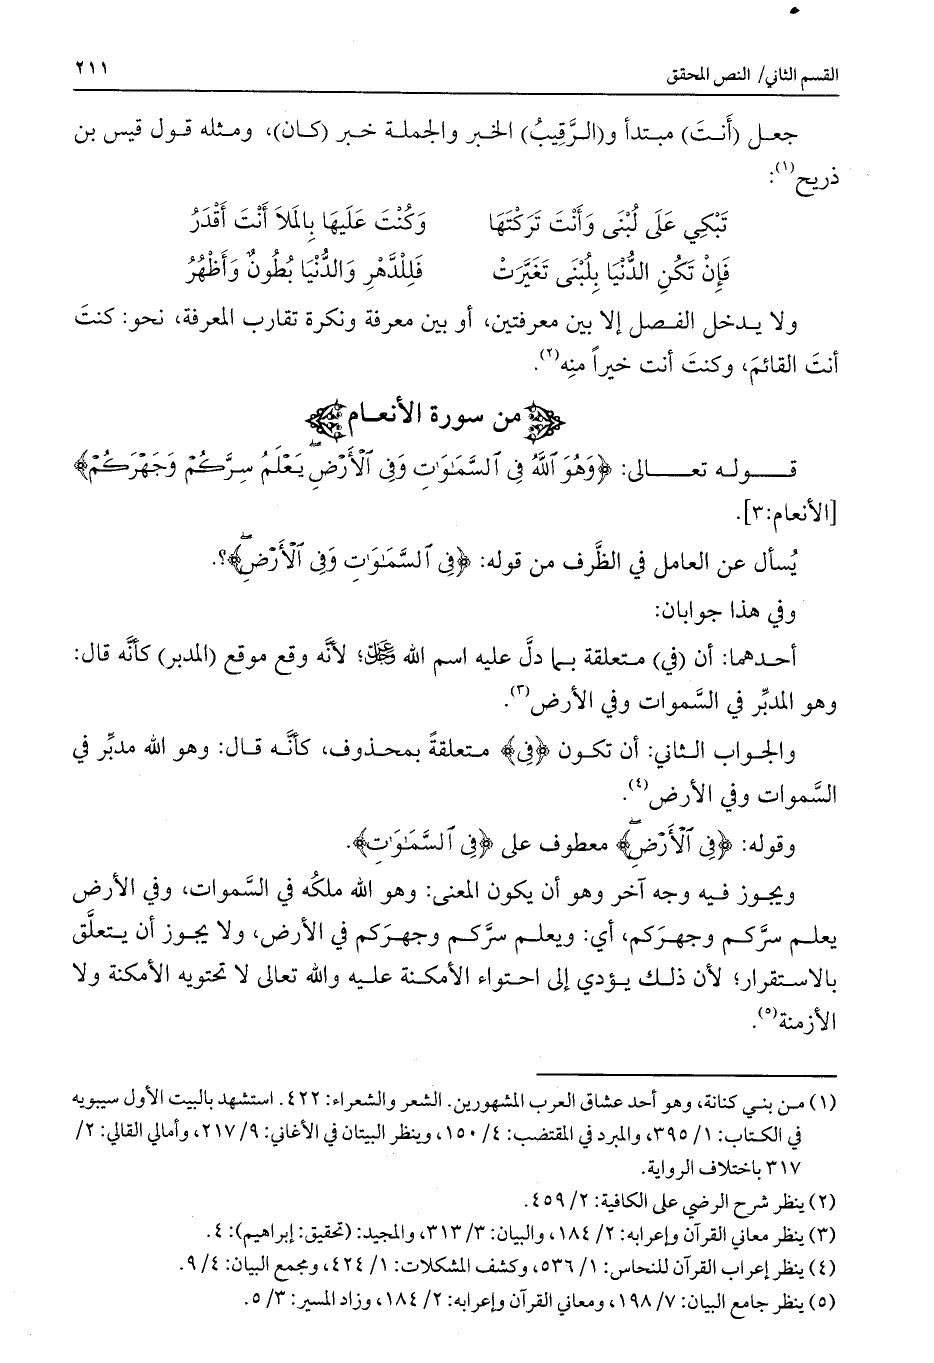 القسم الثاني/ النص المحقق ٢١١
جعل (أَنتَ) مبتدأ و(الرَّقِيبُ) الخبر والجملة خبر (كان)، ومثله قول قيس بن
ذريح(١):
تَبْكِي عَلَى لُبْنَى وَأَنْتَ تَرَكْتَهَا وَكُنْتَ عَلَيهَا بِالمَلاَ أَنْتَ أَقْدَرُ
فَإِنْ تَكُنِ الدُّنْيَا بِلُبْنَى تَغَيَّرَتْ فَلِلْدَّهْرِ وَالدُّنْيَا بُطُونٌ وَأَظْهُرُ
ولا يدخل الفصل إلا بين معرفتين، أو بين معرفة ونكرة تقارب المعرفة، نحو: كنتَ
أنتَ القائمَ، وكنتَ أنت خيراً منه(٢).
من سورة الأنعام
قوله تعالى: ﴿وَهُوَ ٱللَّهُ فِى ٱلسَّمَٰوَٰتِ وَفِى ٱلْأَرْضِۖ يَعْلَمُ سِرَّكُمْ وَجَهْرَكُمْ﴾
[الأنعام:٣].
يُسأل عن العامل في الظَّرف من قوله: ﴿فِى ٱلسَّمَٰوَٰتِ وَفِى ٱلْأَرْضِۖ﴾؟.
وفي هذا جوابان:
أحدهما: أن (في) متعلقة بما دلَّ عليه اسم الله عز وجل؛ لأنَّه وقع موقع (المدبر) كأنَّه قال:
وهو المدبِّر في السَّموات وفي الأرض(٣).
والجواب الثاني: أن تكون ﴿فِى﴾ متعلقةً بمحذوف، كأنَّه قال: وهو الله مدبِّر في
السَّموات وفي الأرض(٤).
وقوله: ﴿فِى ٱلْأَرْضِۖ﴾ معطوف على ﴿فِى ٱلسَّمَٰوَٰتِ﴾.
ويجوز فيه وجه آخر وهو أن يكون المعنى: وهو الله ملكُه في السَّموات، وفي الأرض
يعلم سرَّكم وجهرَكم، أي: ويعلم سرَّكم وجهرَكم في الأرض، ولا يجوز أن يتعلَّق
بالاستقرار؛ لأن ذلك يؤدي إلى احتواء الأمكنة عليه والله تعالى لا تحتويه الأمكنة ولا
الأزمنة(٥).
(١) من بني كنانة، وهو أحد عشاق العرب المشهورين. الشعر والشعراء: ٤٢٢. استشهد بالبيت الأول سيبويه
في الكتاب: ١/ ٣٩٥، والمبرد في المقتضب: ٤/ ١٥٠، وينظر البيتان في الأغاني: ٩/ ٢١٧، وأمالي القالي: ٢/
٣١٧ باختلاف الرواية.
(٢) ينظر شرح الرضي على الكافية: ٢/ ٤٥٩.
(٣) ينظر معاني القرآن وإعرابه: ٢/ ١٨٤، والبيان: ٣/ ٣١٣، والمجيد: (تحقيق: إبراهيم): ٤.
(٤) ينظر إعراب القرآن للنحاس: ١/ ٥٣٦، وكشف المشكلات: ١/ ٤٢٤، ومجمع البيان: ٤/ ٩.
(٥) ينظر جامع البيان: ٧/ ١٩٨، ومعاني القرآن وإعرابه: ٢/ ١٨٤، وزاد المسير: ٣/ ٥.